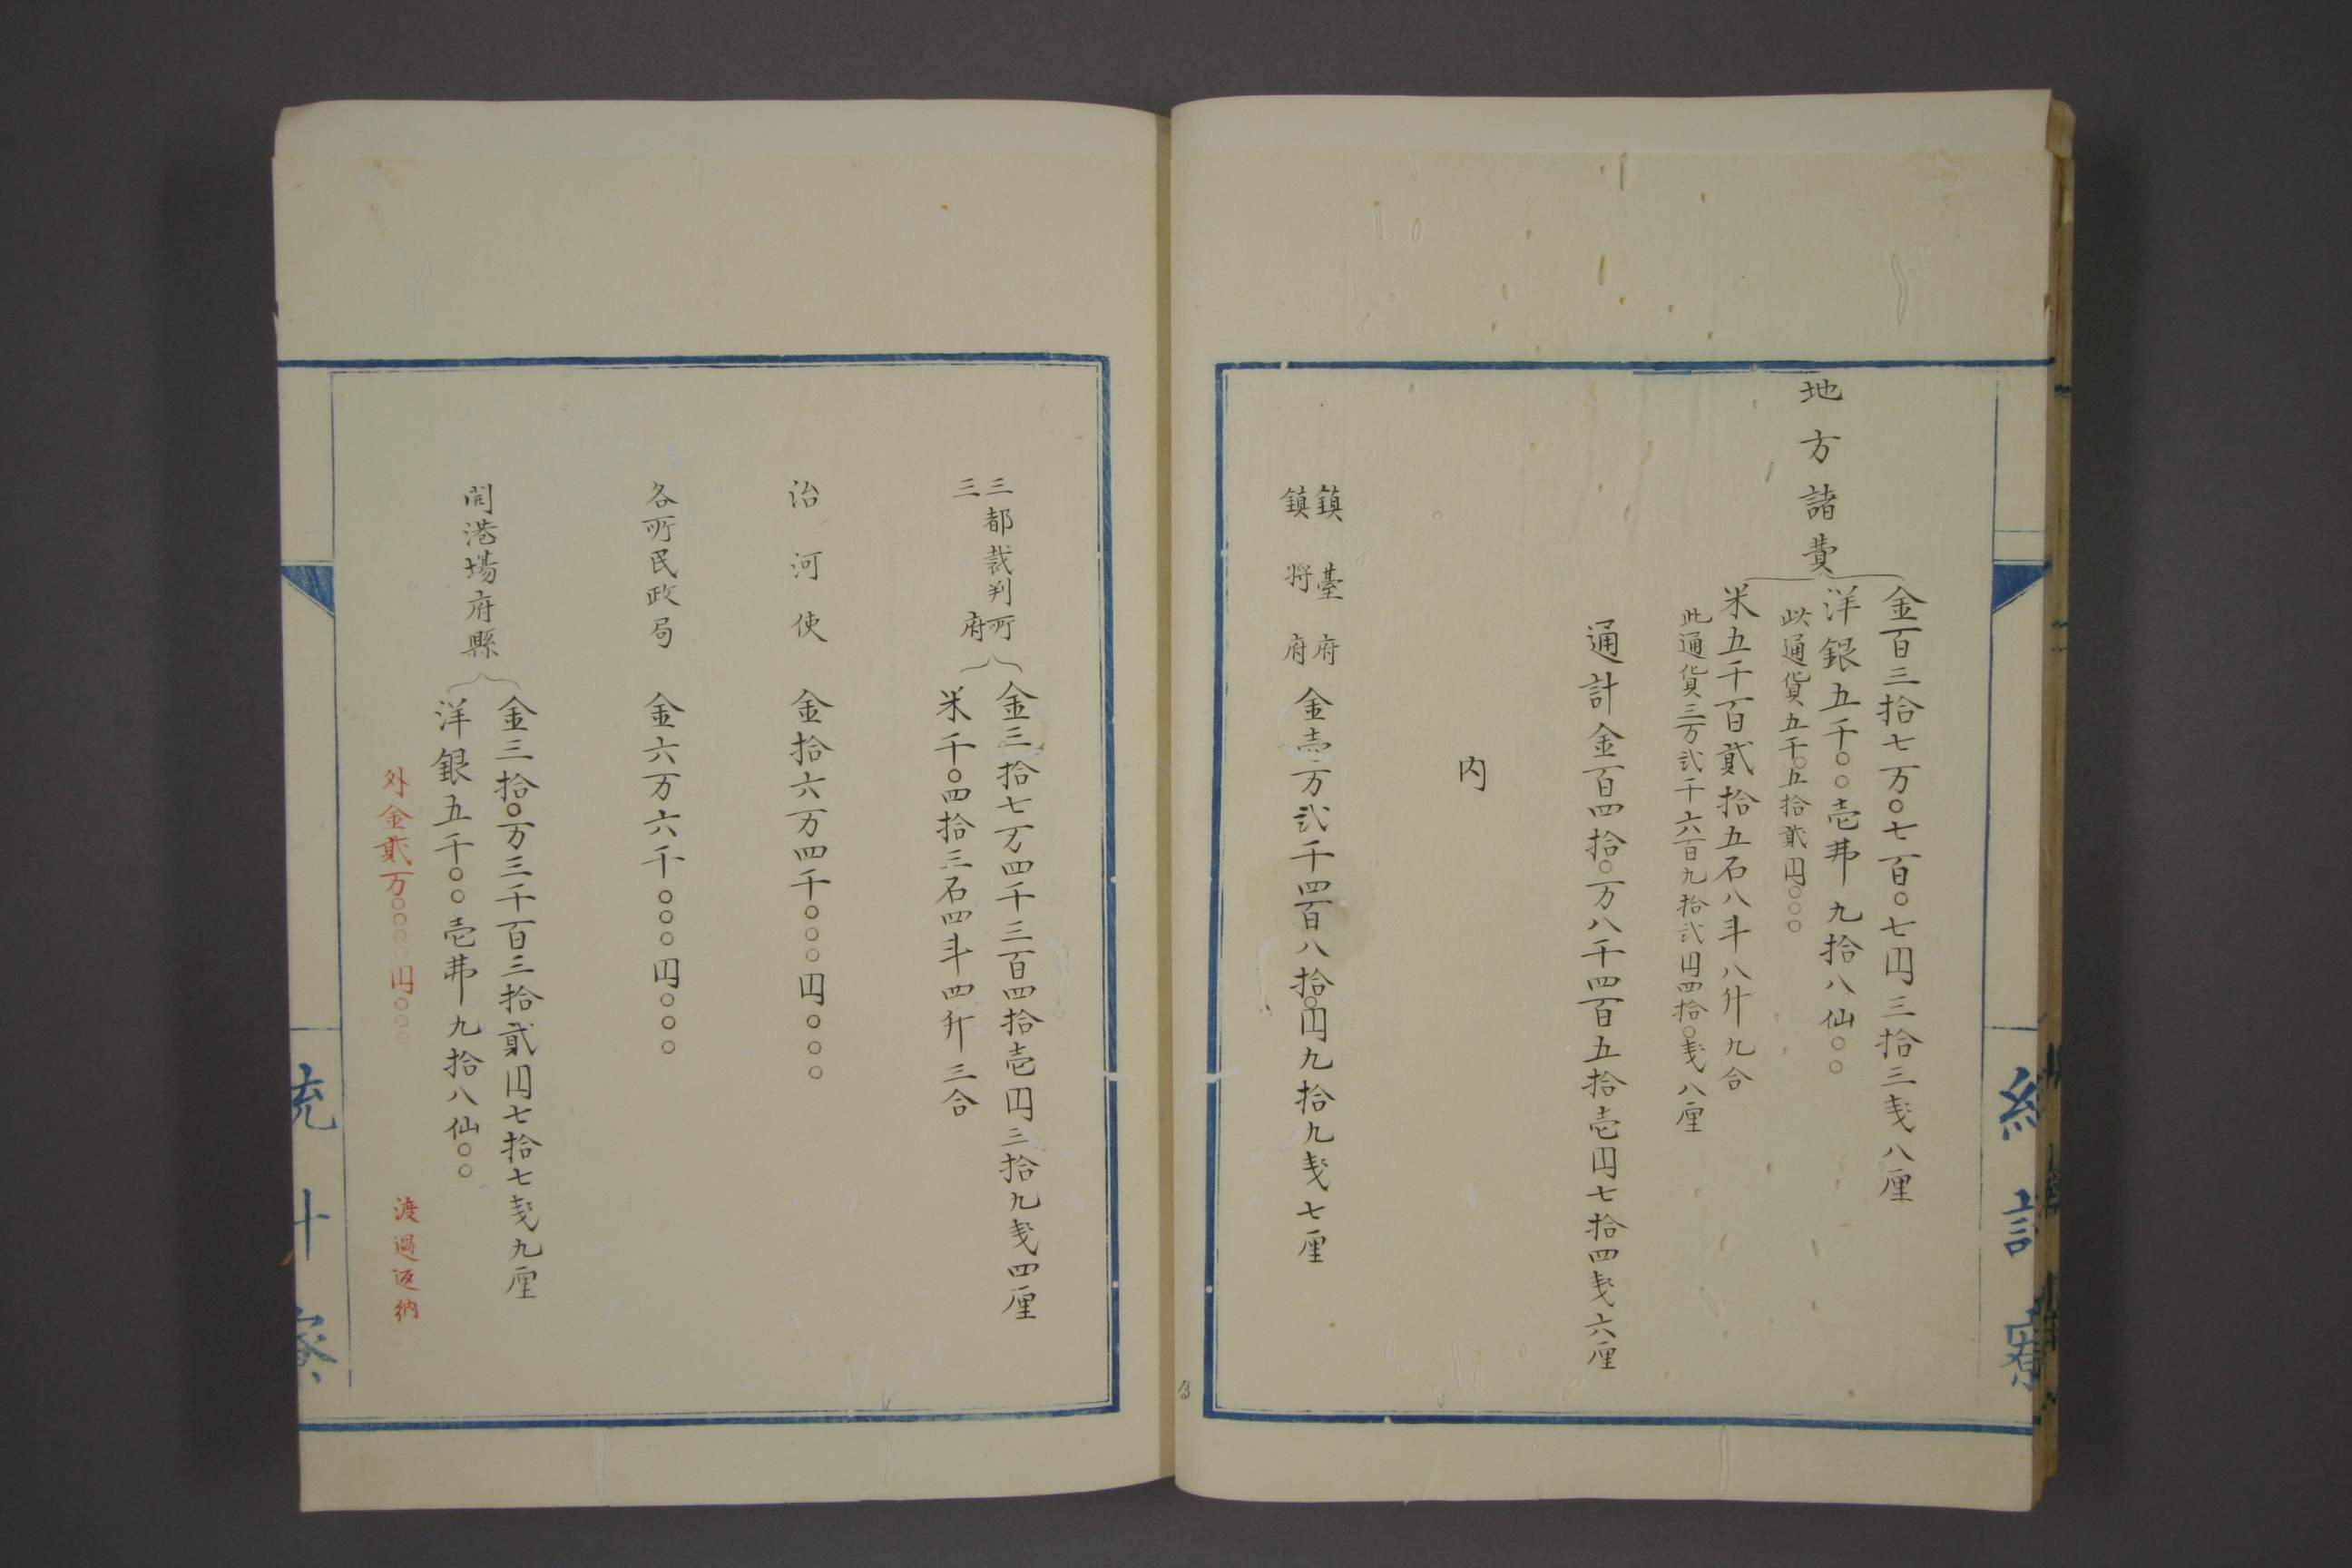 地方諸費
金百三拾七万〇七百〇七円三拾三戋八厘
洋銀五千〇〇壱弗九拾八仙〇〇
此通貨五千〇五拾貳円〇〇〇
米五千百貳拾五石八斗八升九合
此通貨三万弐千六百九拾弐円四拾〇戋八厘
通計金百四拾〇万八千四百五拾壱円七拾四戋六厘
内
鎮臺府
鎮将府
金壱万弐千四百八拾〇円九拾九戋七厘
三都裁判所
三府
金三拾七万四千三百四拾壱円三拾九戋四厘
米千〇四拾三石四斗四升三合
治河使
金拾六万四千〇〇〇円〇〇〇
各所民政局
金六万六千〇〇〇円〇〇〇
開港場府縣
金三拾〇万三千百三拾貳円七拾七戋九厘
洋銀五千〇〇壱弗九拾八仙〇〇
外金貳万〇〇〇〇円〇〇〇 渡過返納
統計寮